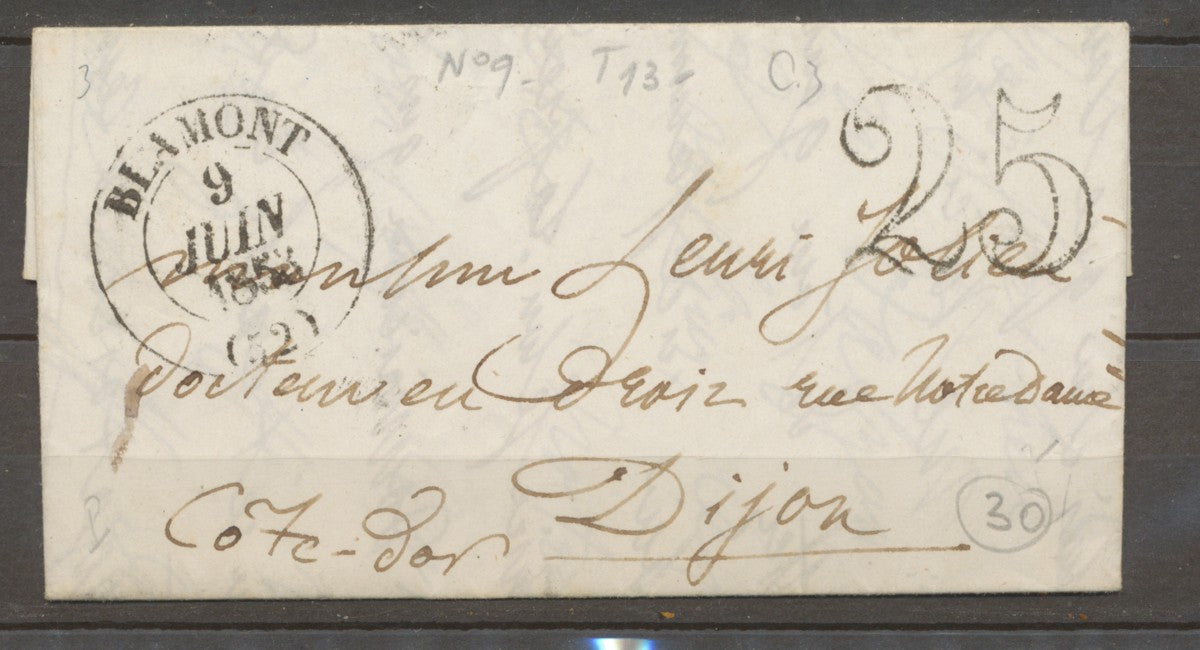 3 N°9- T 13- C3
25
BLAMONT
9
JUIN
185
(52)
monsieur henri Joliet
docteur en droit rue Notre Dame
Dijon
Côte-dor
30